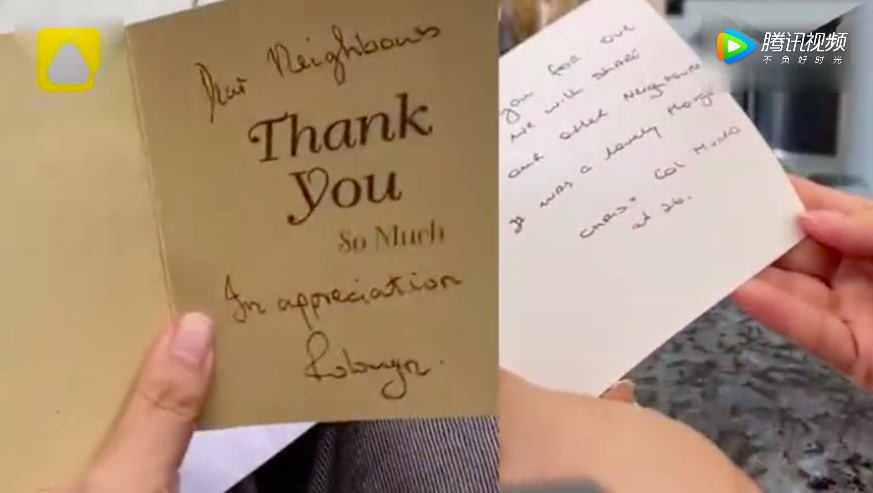 Dear Neighbours
Thank
you
So Much
In appreciation
Robwyn.
you for our
we will share
our other Neighbours
It was a lovely
Chris & Col
at 26.
腾讯视频
不负好时光